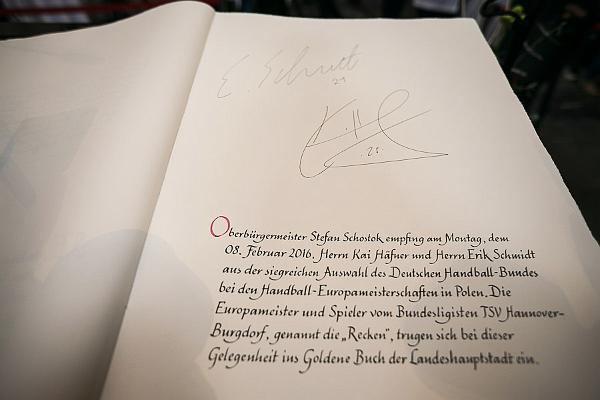 E. Schmidt
21
K. H
.23.
Oberbürgermeister Stefan Schostok empfing am Montag, dem
08. Februar 2016, Herrn Kai Häfner und Herrn Erik Schmidt
aus der siegreichen Auswahl des Deutschen Handball-Bundes
bei den Handball-Europameisterschaften in Polen. Die
Europameister und Spieler vom Bundesligisten TSV Hannover-
Burgdorf, genannt die „Recken", trugen sich bei dieser
Gelegenheit ins Goldene Buch der Landeshauptstadt ein.